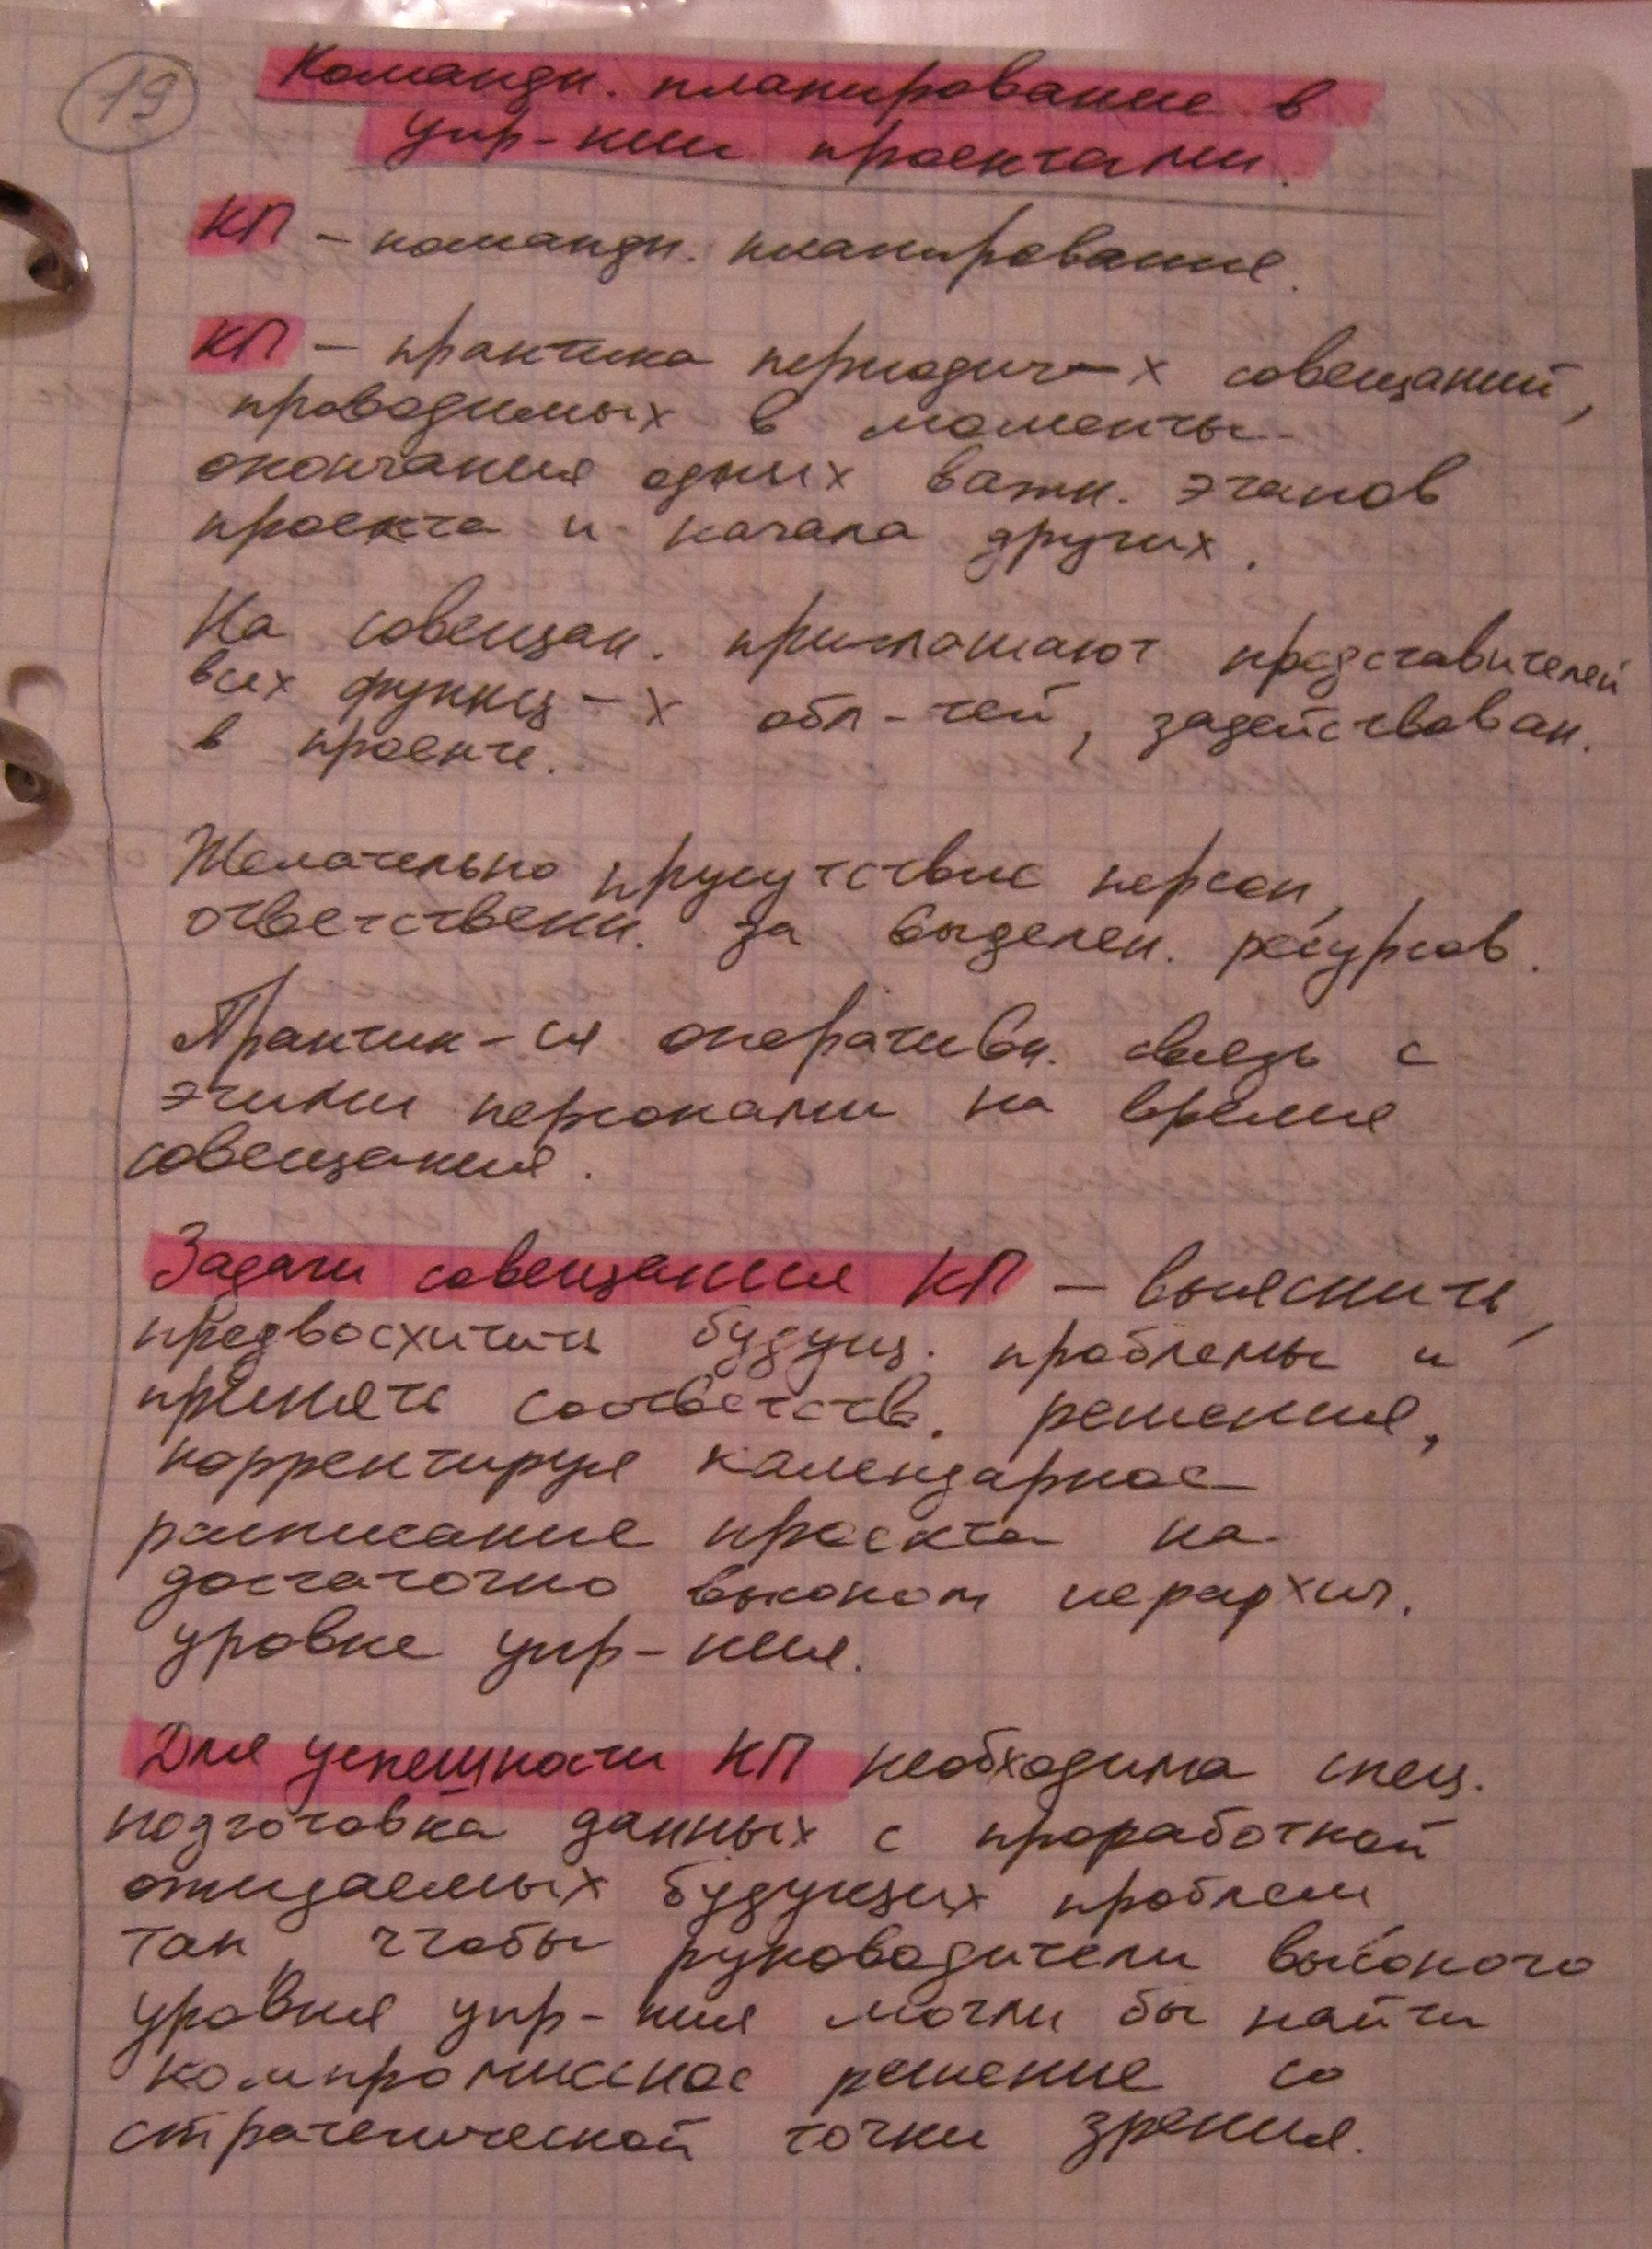 19
Командн. планирование в
упр-нии проектами.
КП – командн. планирование.
КП – практика периодич-х совещаний,
проводимых в моменты
окончания одних важн. этапов
проекта и начала других.
На совещан. приглашают представителей
всех функц-х обл-тей, задействован.
в проекте.
Желательно присутствие персон,
ответственн. за выделен. ресурсов.
Практик-ся оперативн. связь с
этими персонами на время
совещания.
Задачи совещания КП – выяснить,
предвосхитить будущ. проблемы и
принять соответств. решения,
корректируя календарное
расписание проекта на
достаточно высоком иерархич.
уровне упр-ния.
Для успешности КП необходима спец.
подготовка данных с проработкой
ожидаемых будущих проблем
так, чтобы руководители высокого
уровня упр-ния могли бы найти
компромиссное решение со
стратегической точки зрения.